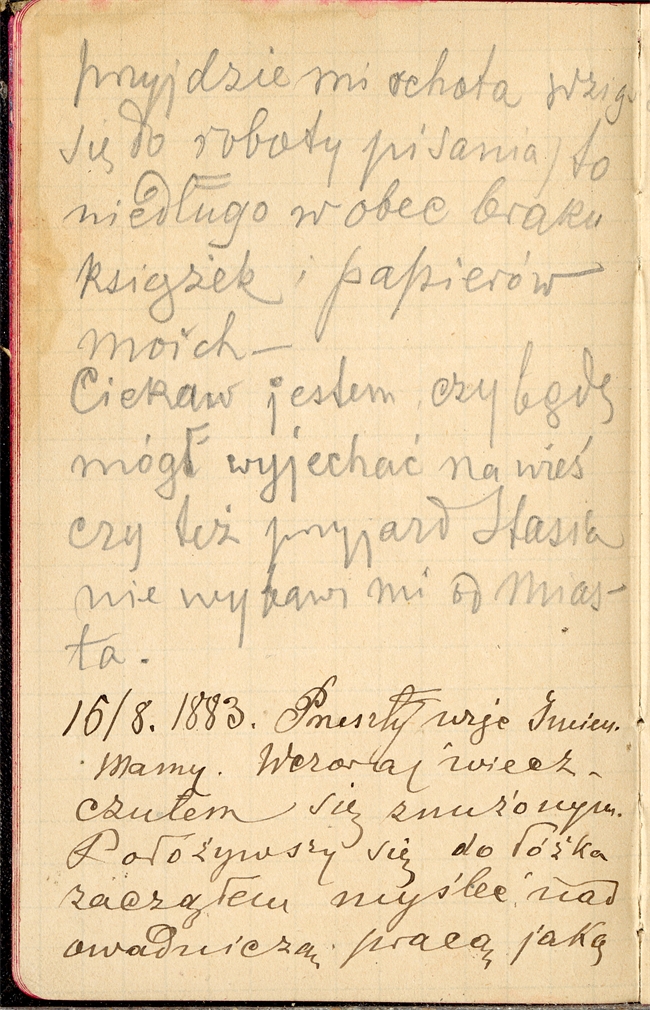 przyjdzie mi ochota wziąć
się do roboty pisania, to
niedługo w obec braku
książek i papierów
moich —
Ciekaw jestem, czy będę
mógł wyjechać na wieś
czy też przyjazd Stasia
nie wybawi mi od mias-
ta.
16/8. 1883. Imien.
Mamy. Wczoraj wiecz-
czułem się znużonym.
Położywszy się do łóżka
zacząłem myśleć nad
owadniczą pracą, jaką